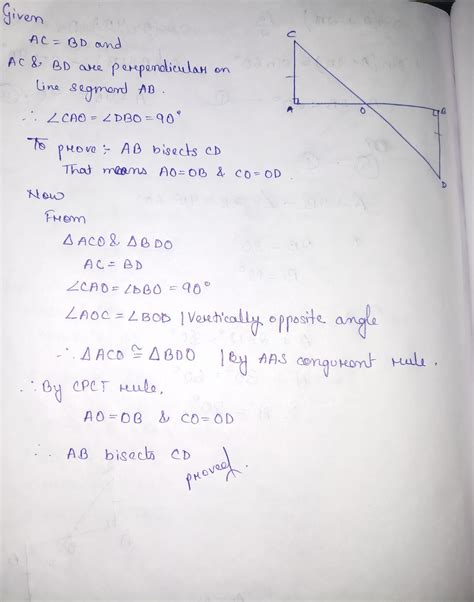 Given
AC = BD and
AC & BD are perpendicular on
line segment AB.
∴ ∠CAO = ∠DBO = 90°
To prove :- AB bisects CD
That means AO=OB & CO=OD.
Now
From
△ACO & △BDO
AC = BD
∠CAO = ∠DBO = 90°
∠AOC = ∠BOD | Vertically opposite angle
∴ △ACO ≅ △BDO | By AAS congruent rule.
∴ By CPCT rule.
AO=OB & CO=OD
∴ AB bisects CD
proved.
C
A
O
B
D